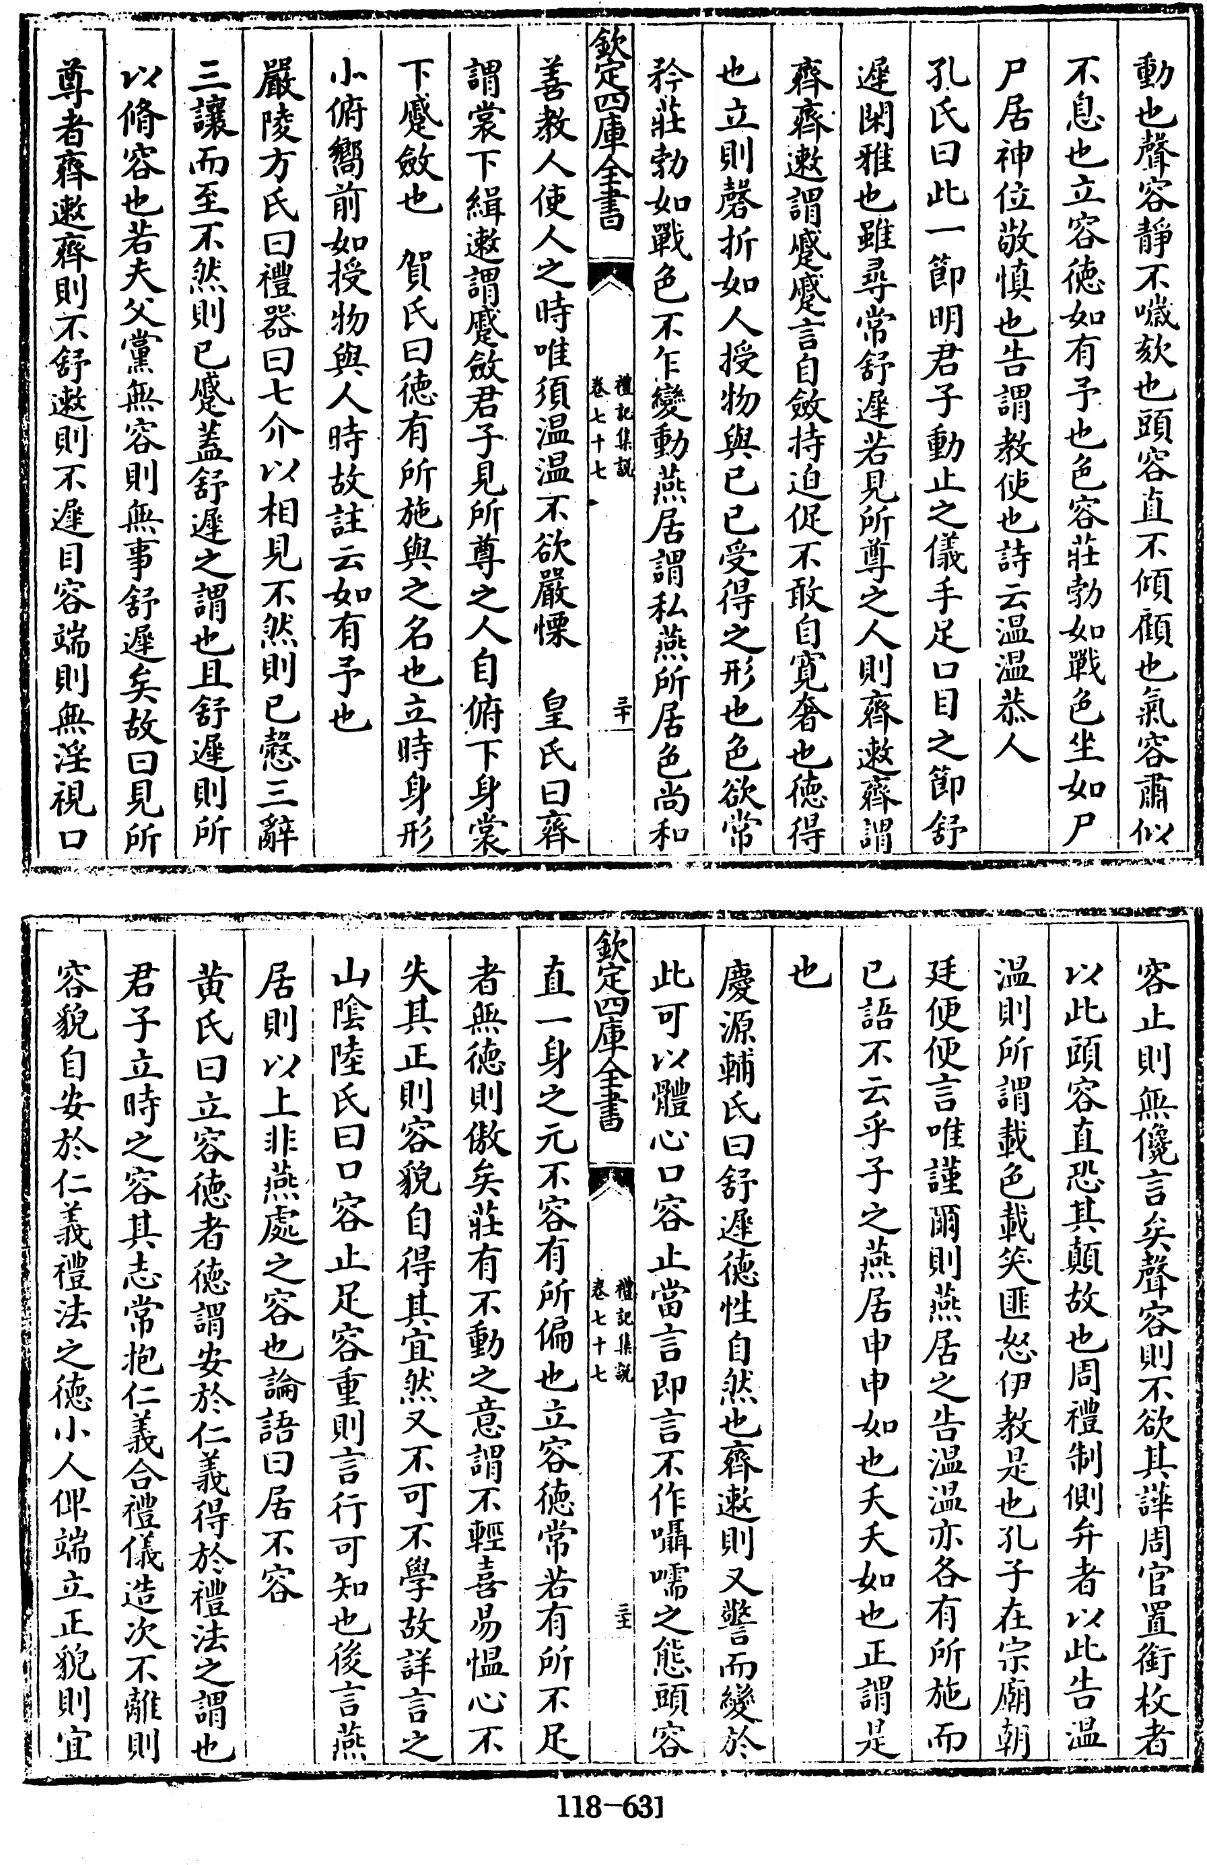 動也聲容静不噦欬也頭容直不傾顧也氣容肅似
不息也立容徳如有予也色容莊勃如戰色坐如尸
尸居神位敬慎也告謂教使也詩云温温恭人
孔氏曰此一節明君子動止之儀手足口目之節舒
遲閑雅也雖尋常舒遲若見所尊之人則齊遬齊謂
齊齊遬謂蹙蹙言自斂持迫促不敢自寛奢也徳得
也立則磬折如人授物與已已受得之形也色欲常
矜莊勃如戰色不乍變動燕居謂私燕所居色尚和
欽定四庫全書
禮記集說
卷七十七
三十一
善教人使人之時唯須温温不欲嚴慄　皇氏曰齊
謂裳下緝遬謂蹙斂君子見所尊之人自俯下身裳
下蹙斂也　賀氏曰徳有所施與之名也立時身形
小俯嚮前如授物與人時故註云如有予也
嚴陵方氏曰禮器曰七介以相見不然則已慤三辭
三讓而至不然則已蹙蓋舒遲之謂也且舒遲則所
以脩容也若夫父黨無容則無事舒遲矣故曰見所
尊者齊遬齊則不舒遬則不遲目容端則無淫視口
容止則無儳言矣聲容則不欲其譁周官置銜枚者
以此頭容直恐其顛故也周禮制側弁者以此告温
温則所謂載色載笑匪怒伊教是也孔子在宗廟朝
廷便便言唯謹爾則燕居之告温温亦各有所施而
已語不云乎子之燕居申申如也夭夭如也正謂是
也
慶源輔氏曰舒遲徳性自然也齊遬則又警而變於
此可以體心口容止當言即言不作囁嚅之態頭容
欽定四庫全書
禮記集說
卷七十七
三十二
直一身之元不容有所偏也立容徳常若有所不足
者無徳則傲矣莊有不動之意謂不輕喜易愠心不
失其正則容貌自得其宜然又不可不學故詳言之
山陰陸氏曰口容止足容重則言行可知也後言燕
居則以上非燕處之容也論語曰居不容
黄氏曰立容徳者徳謂安於仁義得於禮法之謂也
君子立時之容其志常抱仁義合禮儀造次不離則
容貌自安於仁義禮法之徳小人俾端立正貌則宜
118-631